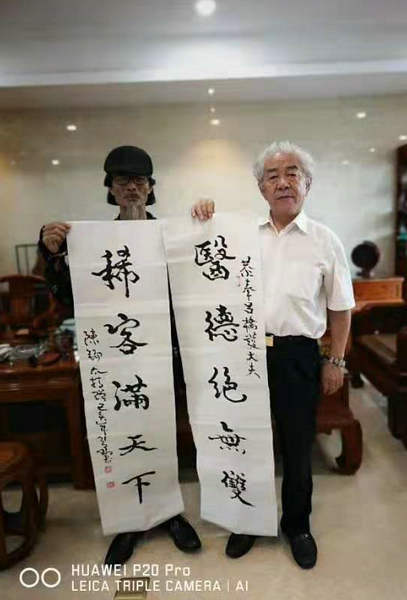 恭奉呂橋大夫
醫德絕無雙
稀客滿天下
HUAWEI P20 Pro
LEICA TRIPLE CAMERA | AI